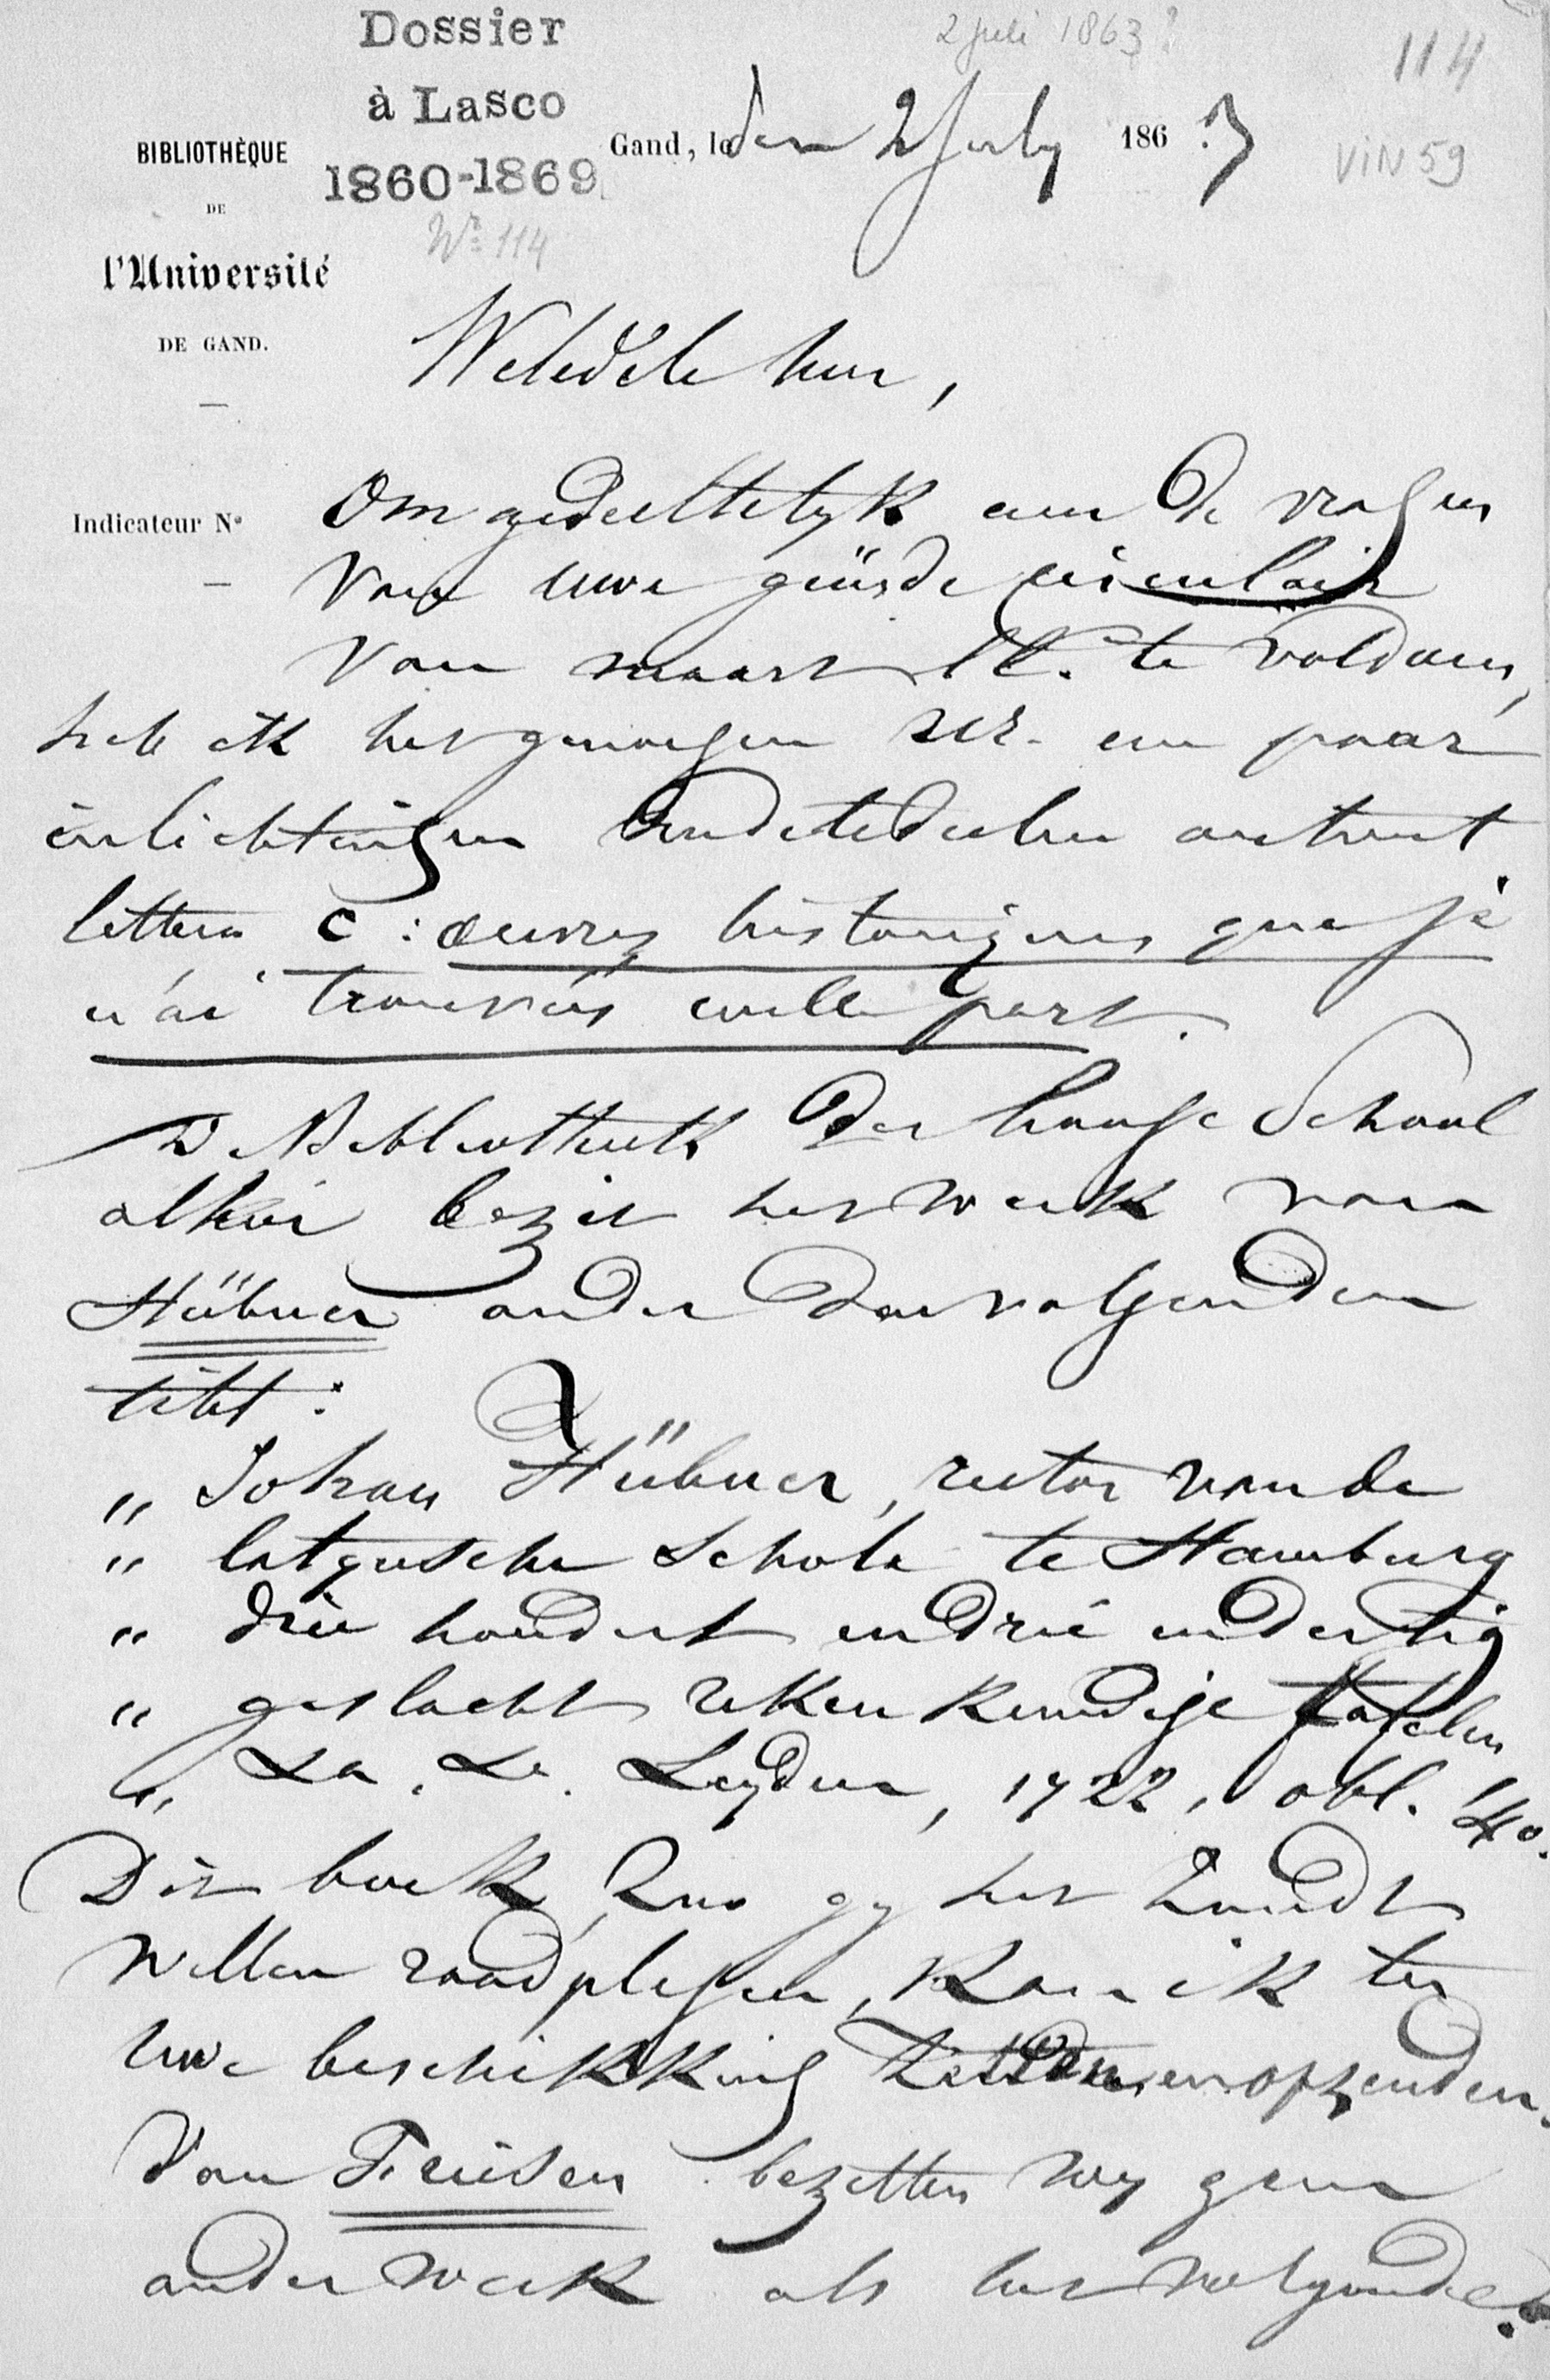 Dossier
à Lasco
1860-1869
Nr 114
2 juli 1863?
114
VIN 59
BIBLIOTHÈQUE
DE
l'Université
DE GAND.
Gand, le den 2 July 1863
Weledele heer,
Indicateur No
Om gedeeltelyk aen de vragen
van uwe geëerde circulair
van maart ll. te voldoen,
heb ik het genoegen een paar
inlichtingen medetedeelen omtrent
littera C : œuvres historiques que je
n'ai trouvées nulle part.
De Bibliotheek der hooge School
alhier bezit het werk van
Hübner onder den volgenden
titel :
„ Johan Hübner, rector van de
„ latynsche schole te Hamburg
„ drie hondert en drie en dertig
„ geslacht rekenkundige tafelen
„ &a. &a. Leyden, 1722, obl. 4o.
Dit boek, zoo gy het zoudt
willen raadplegen, kan ik ter
uwe beschikking zenden opzenden.
Van Freisen bezitten wy geen
ander werk als het volgende: